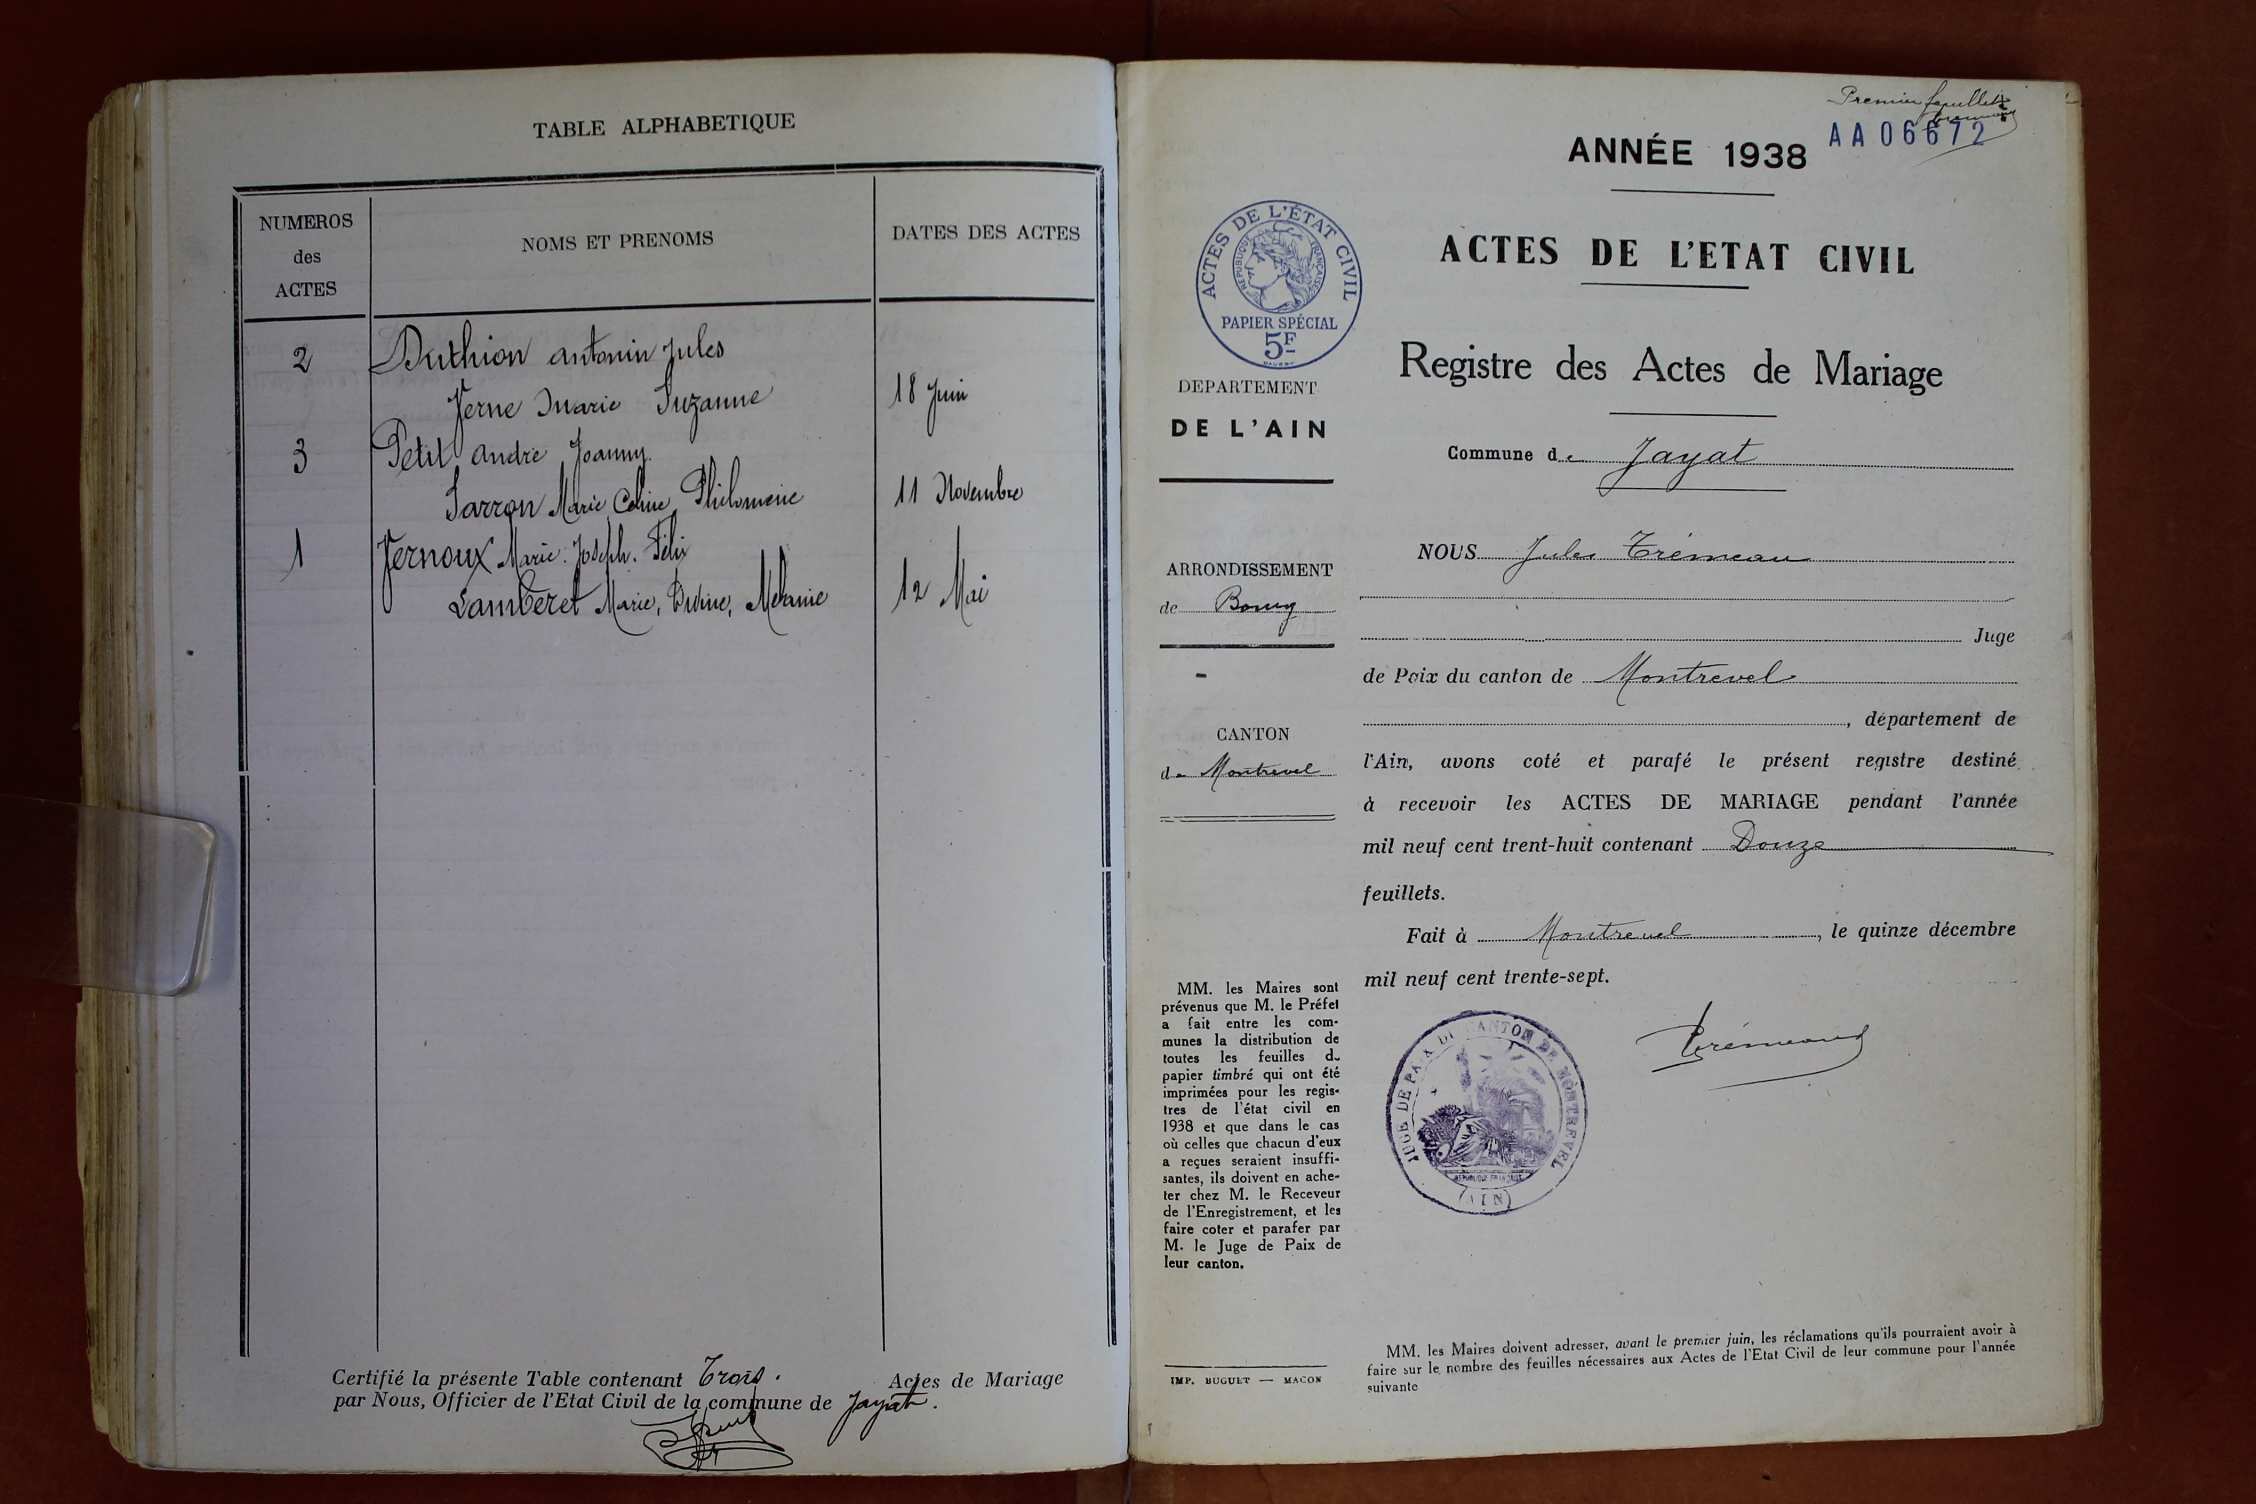 TABLE ALPHABETIQUE
NUMEROS
des
ACTES
NOMS ET PRENOMS
DATES DES ACTES
2 Duthion antonin Jules
Verne Marie Suzanne 18 Juin
3 Petit andre Joanny
Sarron Marie Celine Philomene 11 Novembre
1 Vernoux Marie Joseph Félix
Lamberet Marie, Melanie 12 Mai
Certifié la présente Table contenant Trois. Actes de Mariage
par Nous, Officier de l'Etat Civil de la commune de Jayat.
Premier feuillet
AA06672
ANNÉE 1938
ACTES DE L'ÉTAT CIVIL
REPUBLIQUE FRANÇAISE
PAPIER SPÉCIAL
5F
ACTES DE L'ETAT CIVIL
Registre des Actes de Mariage
DEPARTEMENT
DE L'AIN
ARRONDISSEMENT
de Bourg
CANTON
de Montrevel
MM. les Maires sont
prévenus que M. le Préfet
a fait entre les com-
munes la distribution de
toutes les feuilles de
papier timbré qui ont été
imprimées pour les regis-
tres de l'état civil en
1938 et que dans le cas
où celles que chacun d'eux
a reçues seraient insuffi-
santes, ils doivent en ache-
ter chez M. le Receveur
de l'Enregistrement, et les
faire coter et parafer par
M. le Juge de Paix de
leur canton.
IMP. BUGUET — MACON
Commune de Jayat
NOUS Jules Trémeau
Juge
de Paix du canton de Montrevel
, département de
l'Ain, avons coté et parafé le présent registre destiné
à recevoir les ACTES DE MARIAGE pendant l'année
mil neuf cent trent-huit contenant Douze
feuillets.
Fait à Montrevel, le quinze décembre
mil neuf cent trente-sept.
Trémeau
JUGE DE PAIX DU CANTON DE MONTREVEL
REPUBLIQUE FRANÇAISE
(AIN)
MM. les Maires doivent adresser, avant le premier juin, les réclamations qu'ils pourraient avoir à
faire sur le nombre des feuilles nécessaires aux Actes de l'Etat Civil de leur commune pour l'année
suivante